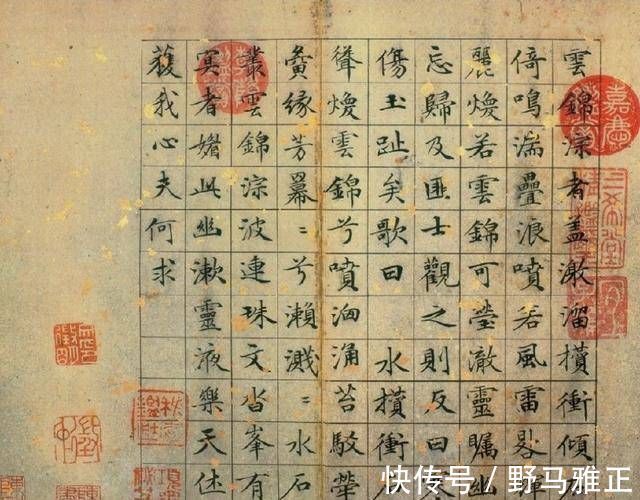 雲錦淙者盖激溜攢衝傾
倚鳴湍疊浪噴若風雷
麗煥若雲錦可瑩澈靈矚幽
忘歸及匪士觀之則反曰
傷玉趾矣歌曰 水攢衝
聳煥雲錦兮噴洶涌苔駁犖
夤緣芳冪〻兮瀨濺〻水石
叢雲錦淙波連珠文沓峯有
冥者媚此幽漱靈液樂天休
獲我心夫何求
快传号／野马雅正